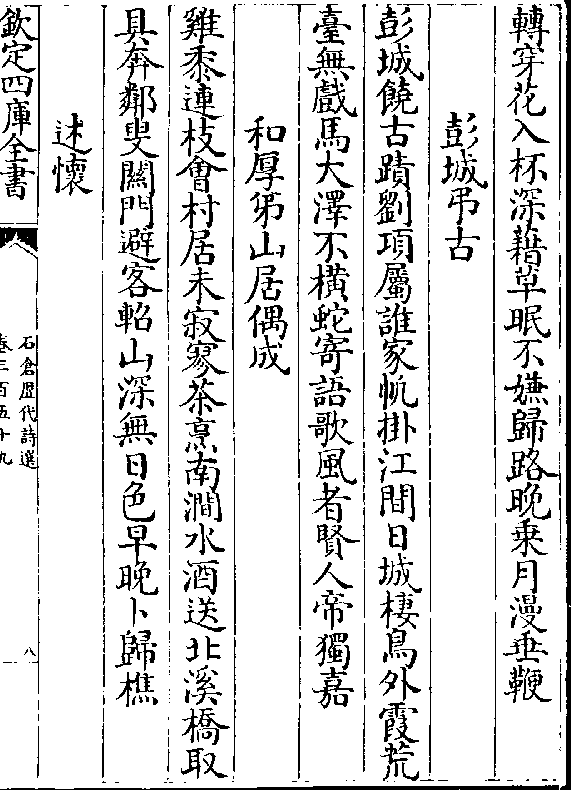 轉穿花入杯深藉草眠不嫌歸路晚乗月漫垂鞭
彭城弔古
彭城饒古蹟劉項屬誰家帆掛江間日城棲鳥外霞荒
臺無戲馬大澤不橫蛇寄語歌風者賢人帝獨嘉
和厚弟山居偶成
雞黍連枝會村居未寂寥茶烹南澗水酒送北溪橋取
具奔鄰叟關門避客軺山深無日色早晚卜歸樵
述懷
欽定四庫全書
石倉歷代詩選
卷三百五十九
八